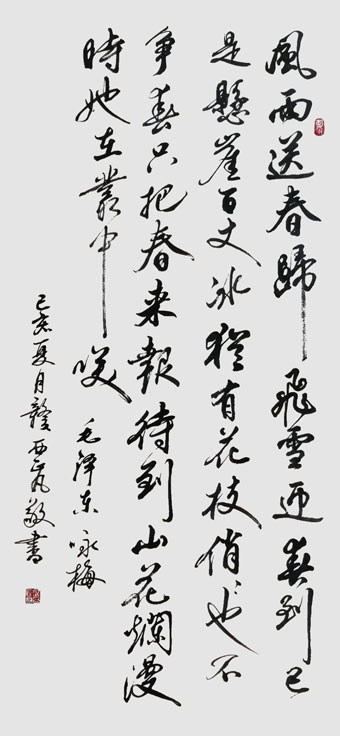 風雨送春歸飛雪迎春到已
是懸崖百丈冰猶有花枝俏々也不
争春只把春来報待到山花爛漫
時她在叢中咲 毛泽东 咏梅
己亥夏月贛西敬書